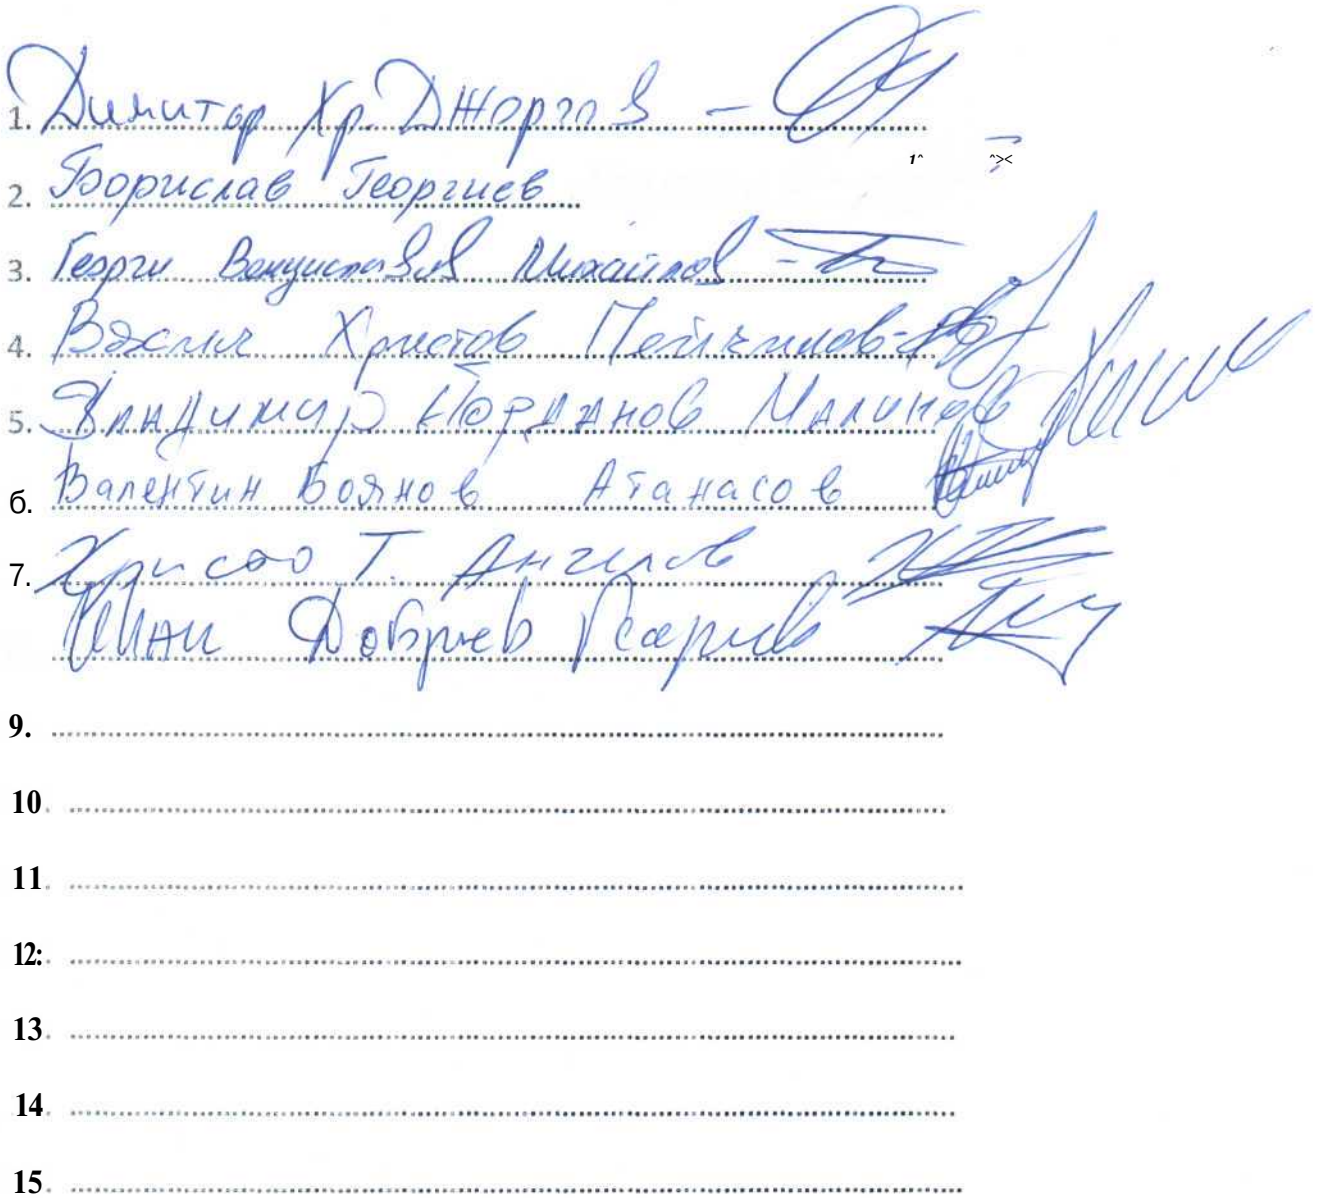 1. Димитър Хр. Джоргов -
2. Борислав Георгиев
3. Георги Венциславов Михайлов -
4. Васил Христов Пейчинов -
5. Владимир Йорданов Малинов
б. Валентин Боянов Атанасов
7. Христо Т. Ангелов
Добриев
9.
10.
11.
12:.
13.
14.
15.